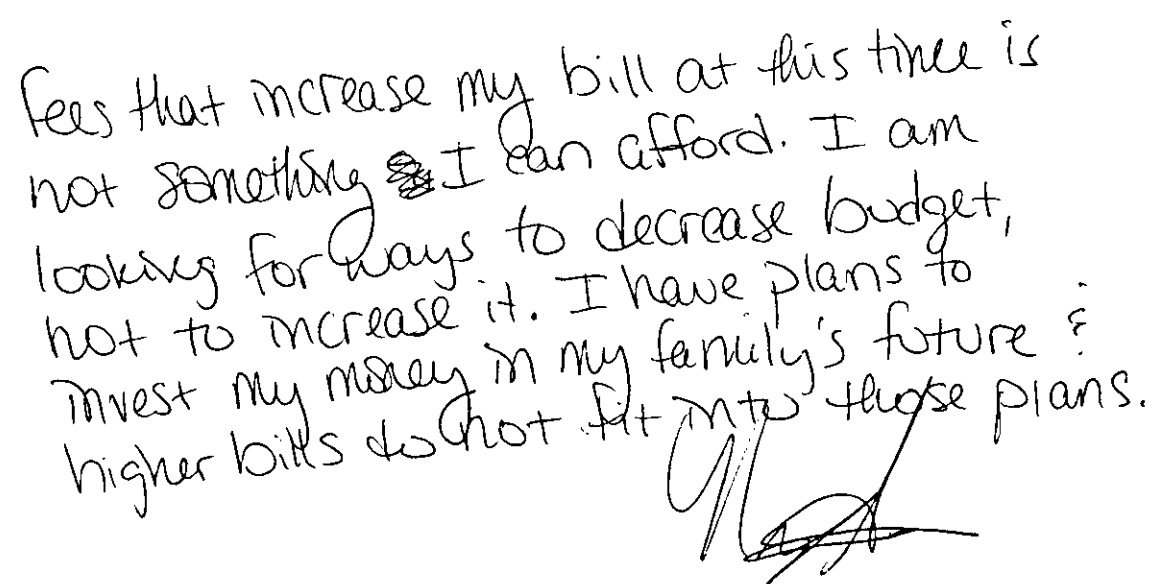 Fees that increase my bill at this time is
not something I can afford. I am
looking for ways to decrease budget,
not to increase it. I have plans to
invest my money in my family's future &
higher bills do not fit into those plans.